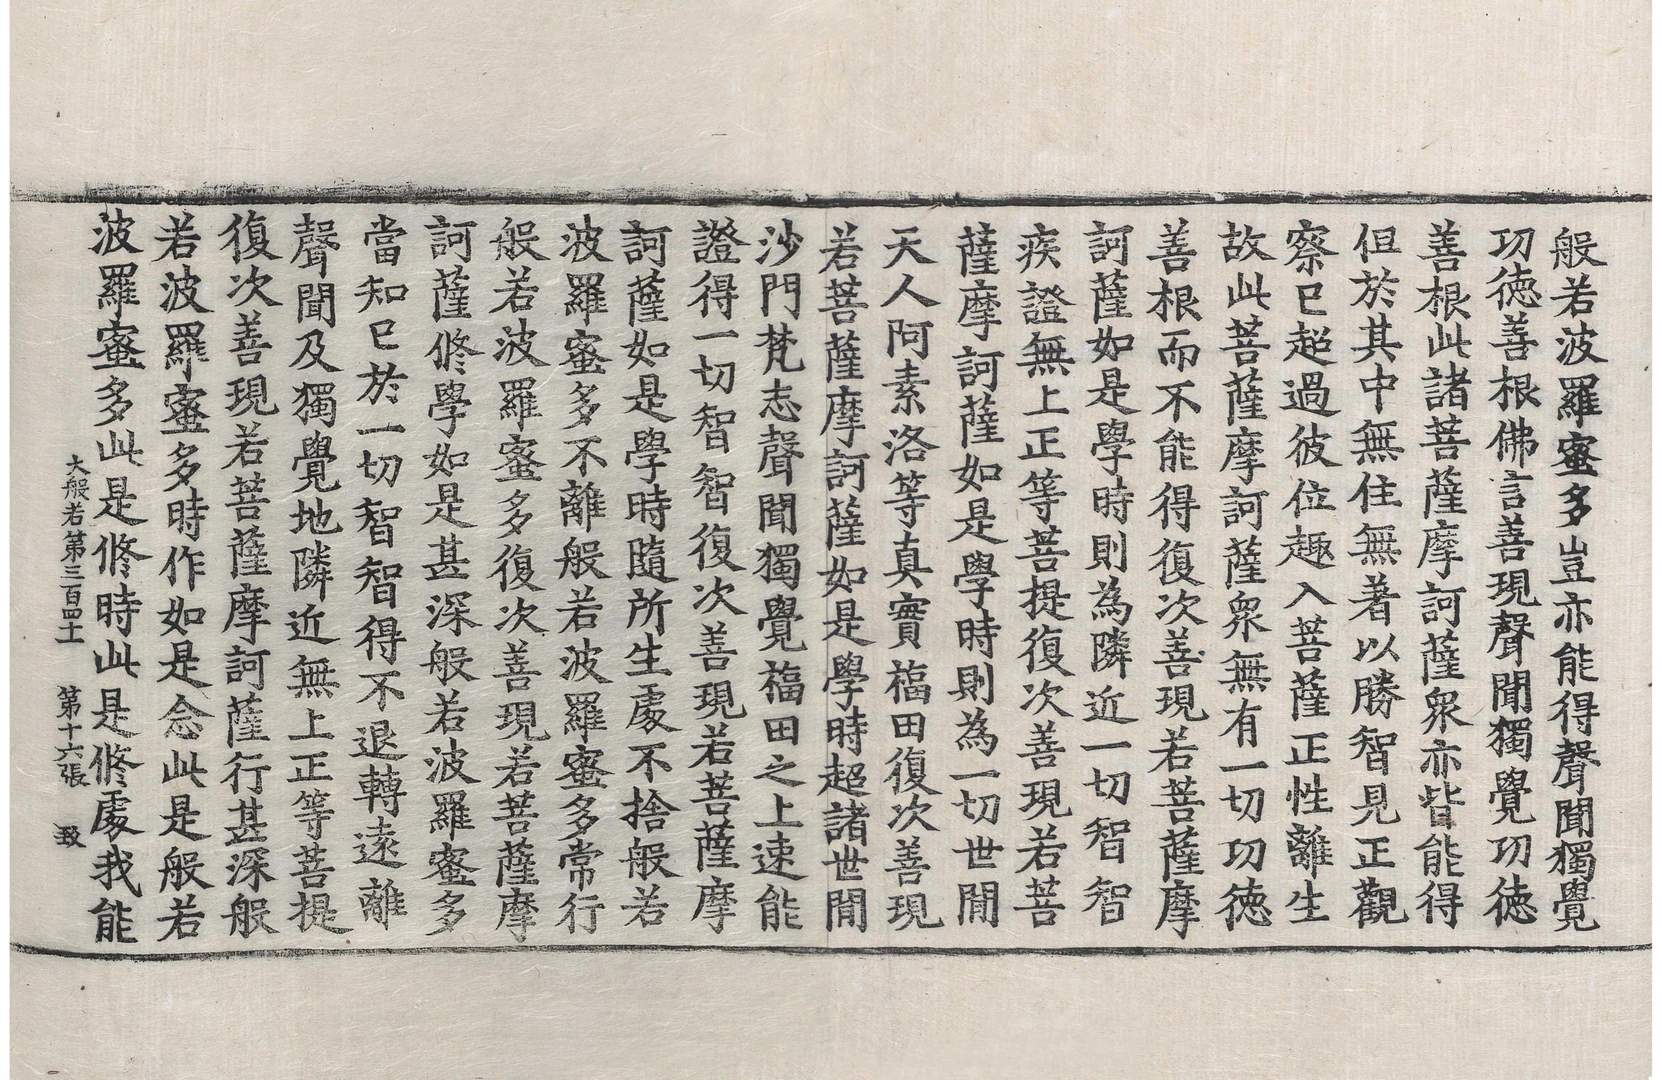 般若波羅蜜多豈亦能得聲聞獨覺
功德善根佛言善現聲聞獨覺功德
善根此諸菩薩摩訶薩衆亦皆能得
但於其中無住無著以勝智見正觀
察已超過彼位趣入菩薩正性離生
故此菩薩摩訶薩衆無有一切功德
善根而不能得復次善現若菩薩摩
訶薩如是學時則為隣近一切智智
疾證無上正等菩提復次善現若菩
薩摩訶薩如是學時則為一切世間
天人阿素洛等真實福田復次善現
若菩薩摩訶薩如是學時超諸世間
沙門梵志聲聞獨覺福田之上速能
證得一切智智復次善現若菩薩摩
訶薩如是學時隨所生處不捨般若
波羅蜜多不離般若波羅蜜多常行
般若波羅蜜多復次善現若菩薩摩
訶薩修學如是甚深般若波羅蜜多
當知已於一切智智得不退轉遠離
聲聞及獨覺地隣近無上正等菩提
復次善現若菩薩摩訶薩行甚深般
若波羅蜜多時作如是念此是般若
波羅蜜多此是修時此是修處我能
大般若第三百四十一 第十六張 致